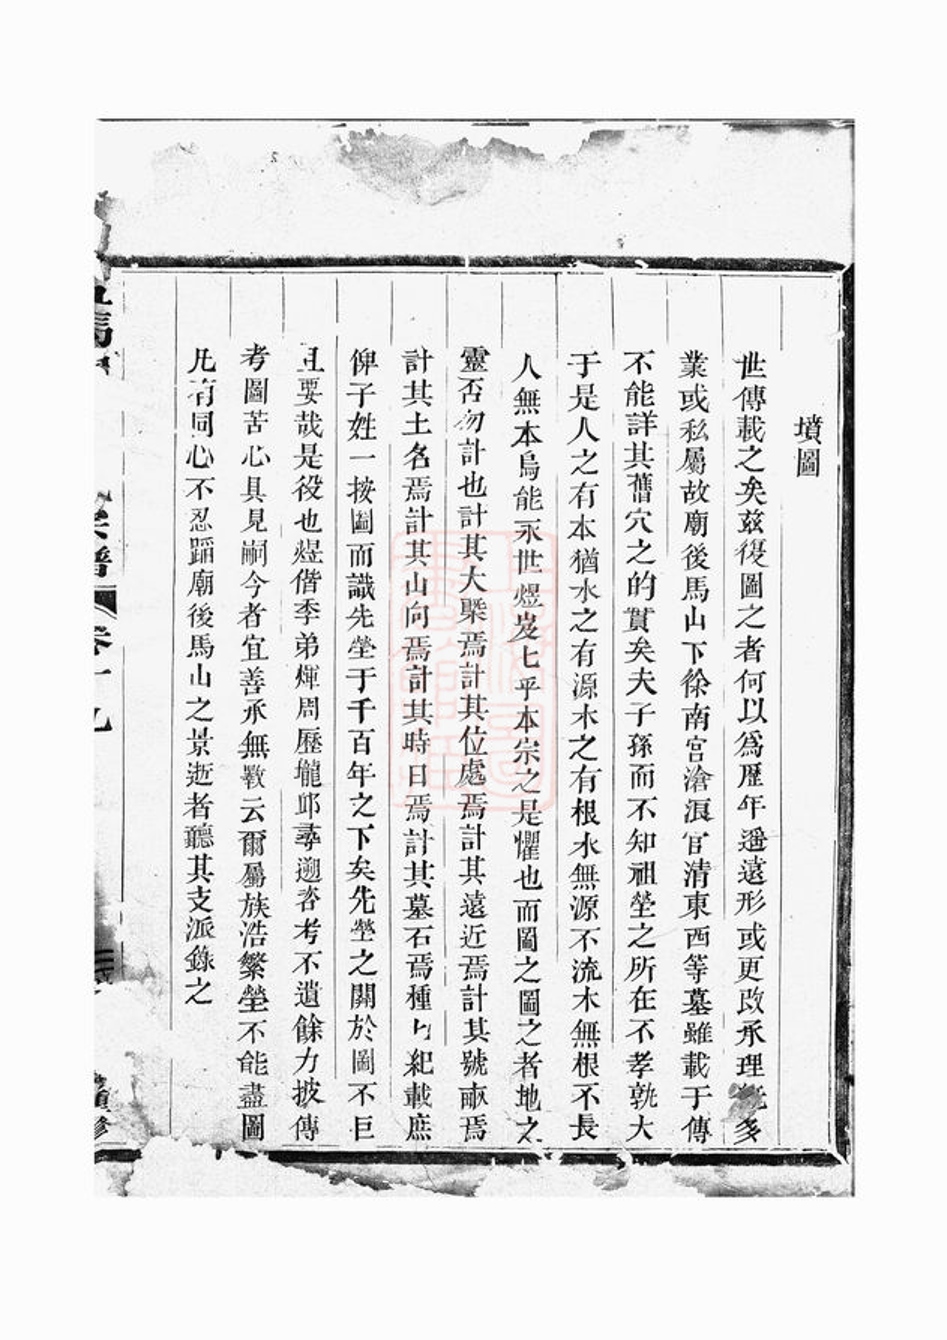 墳圖
世傳載之矣玆復圖之者何以爲歷年遥遠形或更改承理多
業或私屬故廟後馬山下徐南宫滄浪官清東西等墓雖載于傳
不能詳其舊穴之的實矣夫子孫而不知祖塋之所在不孝孰大
于是人之有本猶水之有源木之有根水無源不流木無根不長
人無本烏能永世煜岌七乎本宗之是懼也而圖之圖之者地之
靈否勿計也計其大槩焉計其位處焉計其遠近焉計其號畝焉
計其土名焉計其山向焉計其時日焉計其墓石焉種七紀載庶
俾子姓一按圖而識先塋于千百年之下矣先塋之關於圖不巨
且要哉是役也煜偕季弟煇周歷壠邱尋遡咨考不遺餘力披傳
考圖苦心具見嗣今者宜善承無斁云爾屬族浩繁塋不能盡圖
凡有同心不忍蹈廟後馬山之景逝者聽其支派錄之
宗譜
卷十九
重修